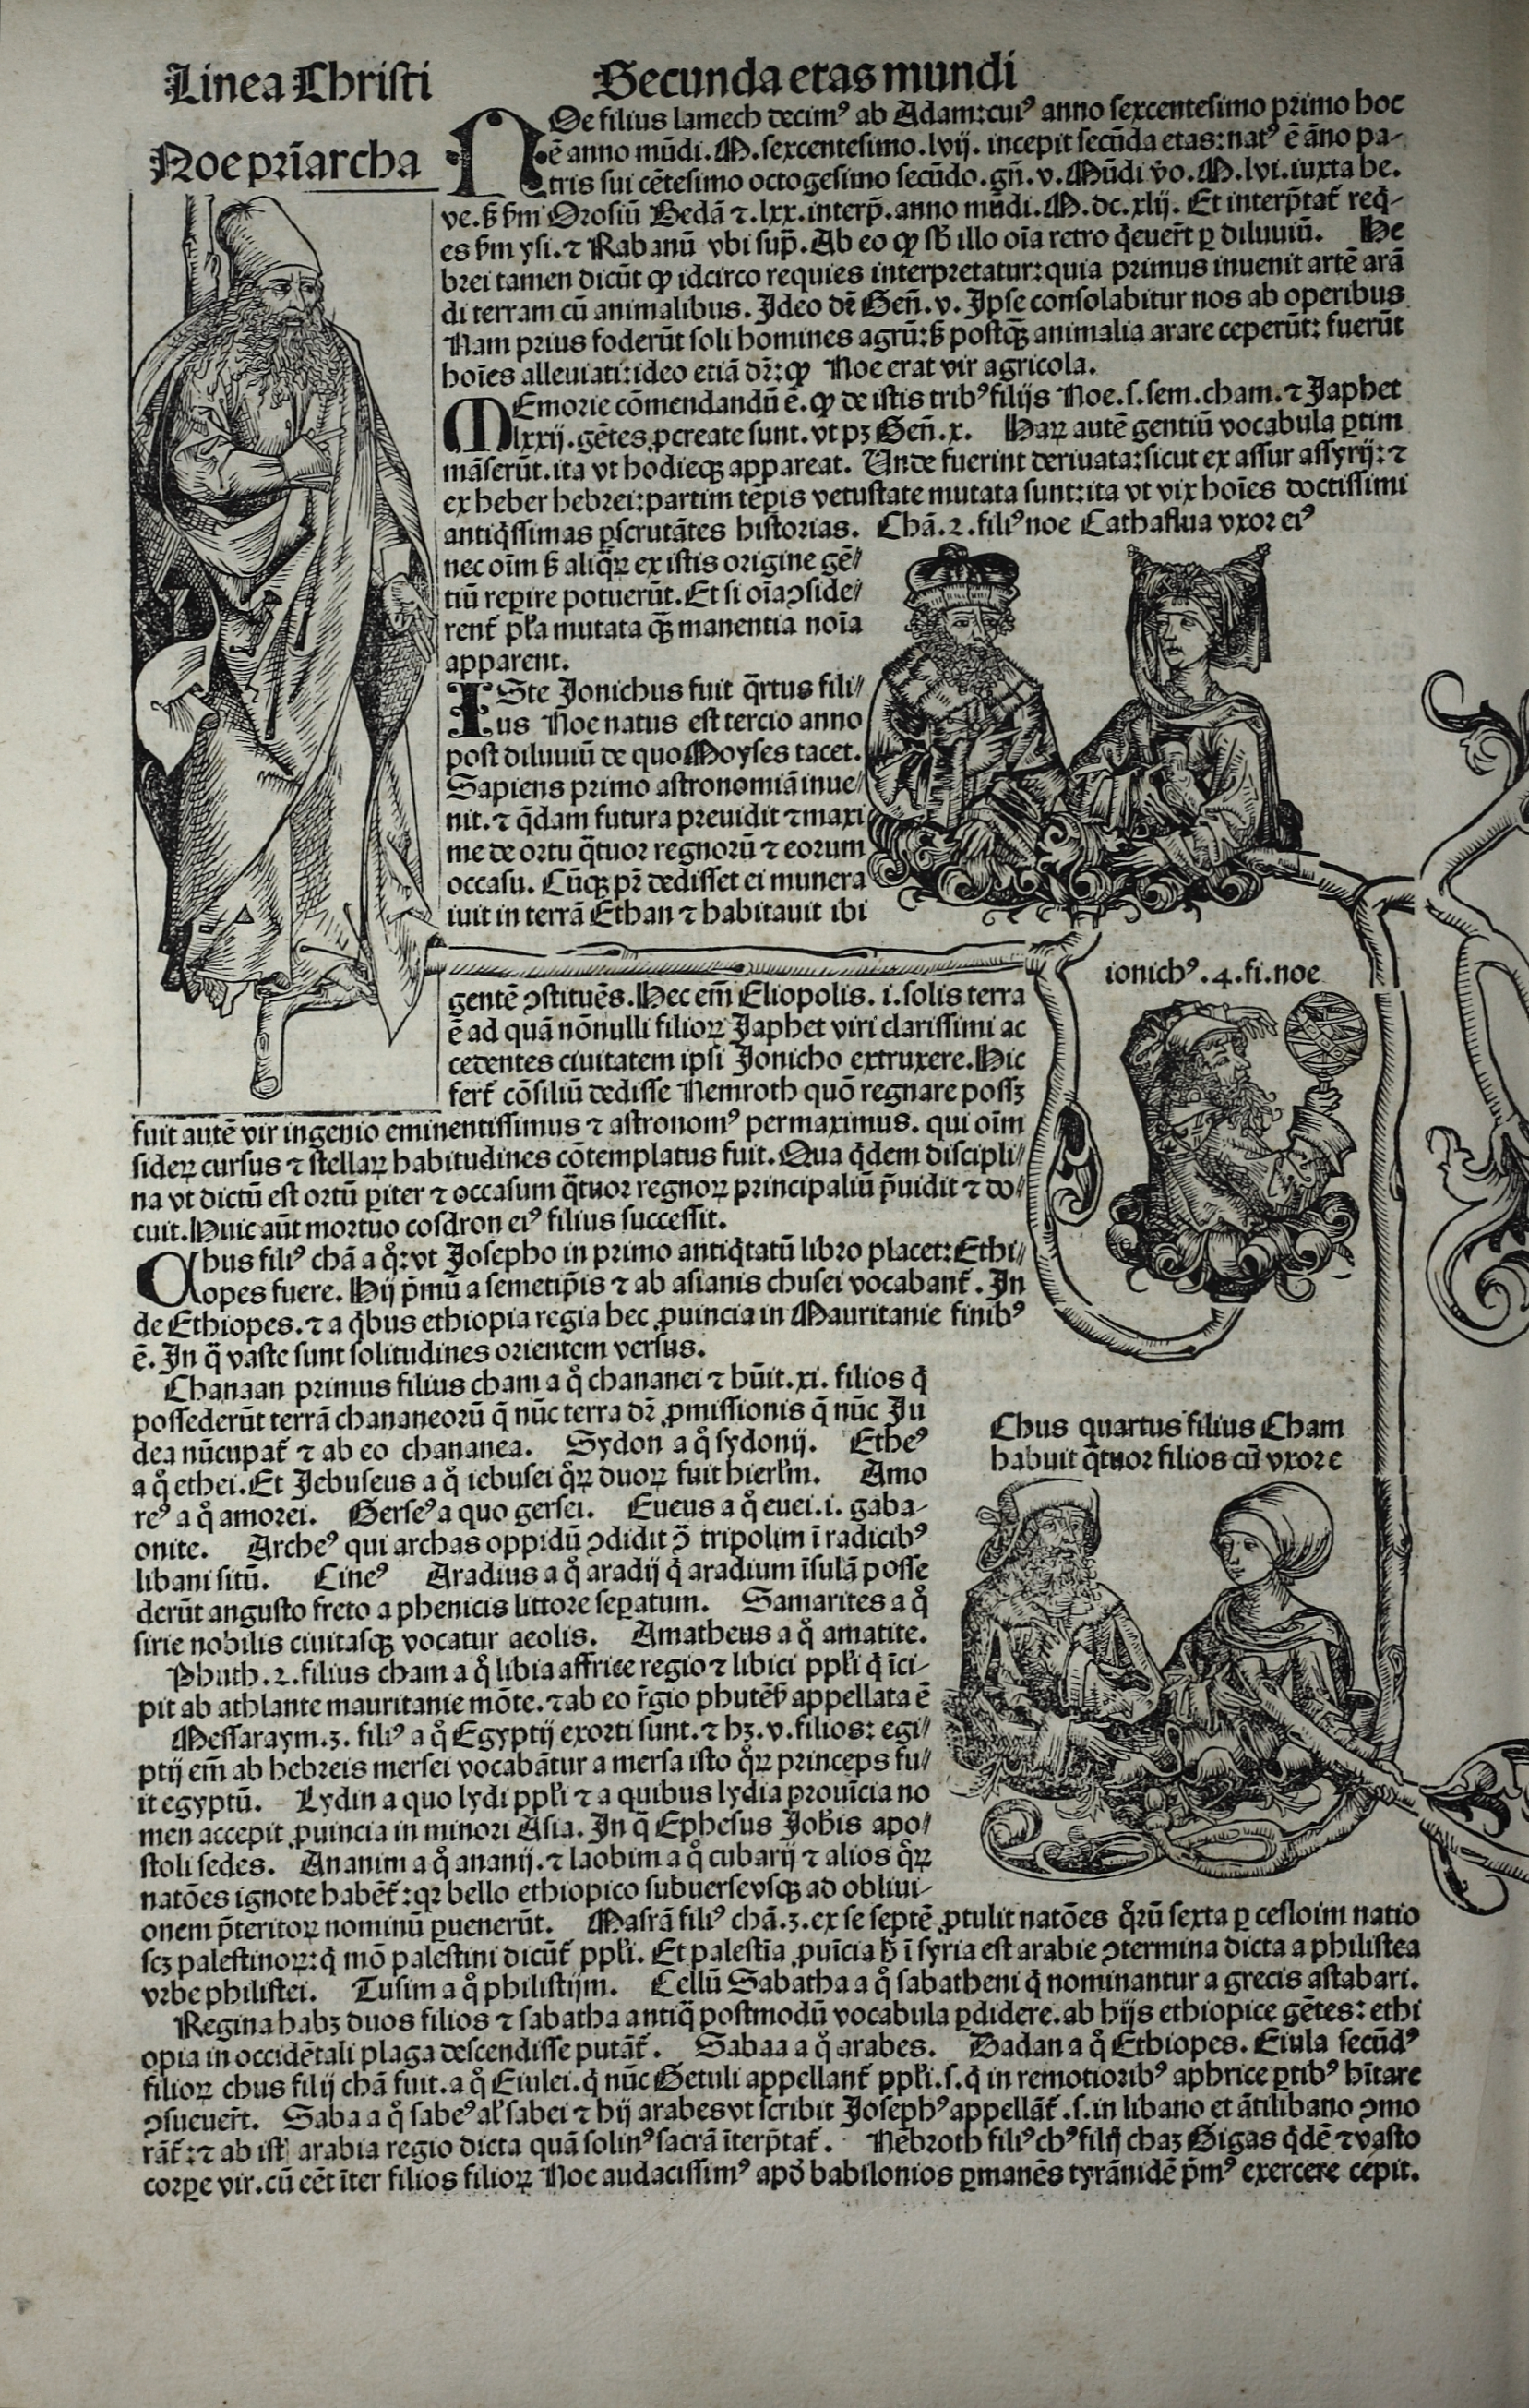 Linea Christi
Secunda etas mundi
Noe pr̄iarcha
NOe filius lamech decimꝰ ab Adam: cuiꝰ anno sexcentesimo primo hoc
ē anno mūdi. M. sexcentesimo. lvij. incepit secūda etas: natꝰ ē āno pa-
tris sui cētesimo octogesimo secūdo. gn̄. v. Mūdi v̊o. M. lvi. iuxta he.
ve. ß ẜm Orosiū Bedā ⁊. lxx. interp̄. anno mūdi. M. dc. xlij. Et interp̄tat᷑ req̇-
es ẜm ysi. ⁊ Rabanū vbi sup̄. Ab eo ꝙ sb̄ illo oīa retro q̇euer̄t ꝑ diluuiū. He
brei tamen dicūt ꝙ idcirco requies interpretatur: quia primus inuenit artē arā
di terram cū animalibus. Ideo dr̄ Gen̄. v. Ipse consolabitur nos ab operibus
Nam prius foderūt soli homines agrū: ß postq̄ꝫ animalia arare ceperūt: fuerūt
hoīes alleuiati: ideo etiā dr̄: ꝙ Noe erat vir agricola.
MEmorie cōmendandū ē. ꝙ de istis tribꝰ filijs Noe. s. sem. cham. ⁊ Japhet
lxxij. gētes ꝓcreate sunt. vt pꝫ Gen̄. x. Haꝝ autē gentiū vocabula ꝑtim
māserūt. ita vt hodieqꝫ appareat. Unde fuerint deriuata: sicut ex assur assyrij: ⁊
ex heber hebrei: partim tēpis vetustate mutata sunt: ita vt vix hoīes doctissimi
antiq̇ssimas ꝑscrutātes historias. Chā. 2. filiꝰ noe Cathaflua vxor eiꝰ
nec oīm ß aliq̄ꝝ ex istis origine gē-
tiū reꝑire potuerūt. Et si oīa ꝯside-
rent᷑ pl̄a mutata q̄ꝫ manentia noīa
apparent.
ISte Jonichus fuit q̄rtus fili-
us Noe natus est tercio anno
post diluuiū de quo Moyses tacet.
Sapiens primo astronomiā inue-
nit. ⁊ q̄dam futura preuidit ⁊ maxi
me de ortu q̄tuor regnorū ⁊ eorum
occasu. Cūqꝫ pr̄ dedisset ei munera
iuit in terrā Ethan ⁊ habitauit ibi
ionichꝰ. 4. fi. noe
gentē ꝯstituēs. Hec em̄ Eliopolis. i. solis terra
ē ad quā nōnulli filioꝝ Japhet viri clarissimi ac
cedentes ciuitatem ipsi Jonicho extruxere. Hic
fert᷑ cōsiliū dedisse Nemroth quō regnare possꝫ
fuit autē vir ingenio eminentissimus ⁊ astronomꝰ permaximus. qui oīm
sideꝝ cursus ⁊ stellaꝝ habitudines cōtemplatus fuit. Qua q̇dem discipli-
na vt dictū est ortū ꝑiter ⁊ occasum q̄tuor regnoꝝ principaliū p̄uidit ⁊ do-
cuit. Huic aūt mortuo cosdron eiꝰ filius successit.
Chus filiꝰ chā a q̊: vt Josepho in primo antiq̇tatū libro placet: Ethi-
opes fuere. Hij p̄mū a semetip̄is ⁊ ab asianis chusei vocabant᷑. In
de Ethiopes. ⁊ a q̇bus ethiopia regia hec ꝓuincia in Mauritanie finibꝰ
ē. In q̄ vaste sunt solitudines orientem versus.
Chanaan primus filius cham a q̊ chananei ⁊ hūit. xi. filios q̇
possederūt terrā chananeorū q̄ nūc terra dr̄ ꝓmissionis q̄ nūc Ju
dea nūcupat᷑ ⁊ ab eo chananea. Sydon a q̊ sydonij. Etheꝰ
a q̊ ethei. Et Jebuseus a q̊ iebusei q̊ꝝ duoꝝ fuit hierl̄m. Amo
reꝰ a q̊ amorei. Gerseꝰ a quo gersei. Eueus a q̊ euei. i. gaba-
onite. Archeꝰ qui archas oppidū ꝯdidit ꝯ̄ tripolim ī radicibꝰ
libani sitū. Cineꝰ Aradius a q̊ aradij q̇ aradium īsulā posse
derūt angusto freto a phenicis littore seꝑatum. Samarites a q̊
sirie nobilis ciuitasqꝫ vocatur aeolis. Amatheus a q̊ amatite.
Phuth. 2. filius cham a q̊ libia affrice regio ⁊ libici ppl̄i q̇ īci-
pit ab athlante mauritanie mōte. ⁊ ab eo r̄gio phutēẜ appellata ē
Messaraym. 3. filiꝰ a q̊ Egyptij exorti sunt. ⁊ hꝫ. v. filios: egi-
ptij em̄ ab hebreis mersei vocabātur a mersa isto q̊ꝝ princeps fu-
it egyptū. Lydin a quo lydi ppl̄i ⁊ a quibus lydia prouīcia no
men accepit ꝓuincia in minori Asia. In q̄ Ephesus Joh̄is apo-
stoli sedes. Ananim a q̊ ananij. ⁊ laobim a q̊ cubarij ⁊ alios q̊ꝝ
natōes ignote habēt᷑: qꝛ bello ethiopico subuerse vsqꝫ ad obliui-
Chus quartus filius Cham
habuit q̄tuor filios cū vxore
onem p̄teritoꝝ nominū ꝑuenerūt. Masrā filiꝰ chā. 3. ex se septē ꝓtulit natōes q̊rū sexta ꝑ cesloim natio
scꝫ palestinoꝝ: q̇ mō palestini dicūt᷑ ppl̄i. Et palestīa ꝓuīcia h̄ ī syria est arabie ꝯtermina dicta a philistea
vrbe philistei. Tusim a q̊ philistijm. Cellū Sabatha a q̊ sabatheni q̇ nominantur a grecis astabari.
Regina habꝫ duos filios ⁊ sabatha antiq̄ postmodū vocabula ꝑdidere. ab hijs ethiopice gētes: ethi
opia in occidētali plaga descendisse putāt᷑. Sabaa a q̊ arabes. Dadan a q̊ Ethiopes. Eiula secūdꝰ
filioꝝ chus filij chā fuit. a q̊ Eiulei. q̇ nūc Getuli appellant᷑ ppl̄i. s. q̇ in remotioribꝰ aphrice ꝑtibꝰ hītare
ꝯsueuer̄t. Saba a q̊ sabeꝰ al̄ sabei ⁊ hij arabes vt scribit Josephꝰ appellāt᷑. s. in libano et ātilibano ꝯmo
rāt᷑: ⁊ ab ist arabia regio dicta quā solinꝰ sacrā īterp̄tat᷑. Nēbroth filiꝰ chꝰ filij chaꝫ Gigas q̇dē ⁊ vasto
corꝑe vir. cū eēt īter filios filioꝝ Noe audacissimꝰ apd̄ babilonios ꝑmanēs tyrānidē p̄mꝰ exercere cepit.